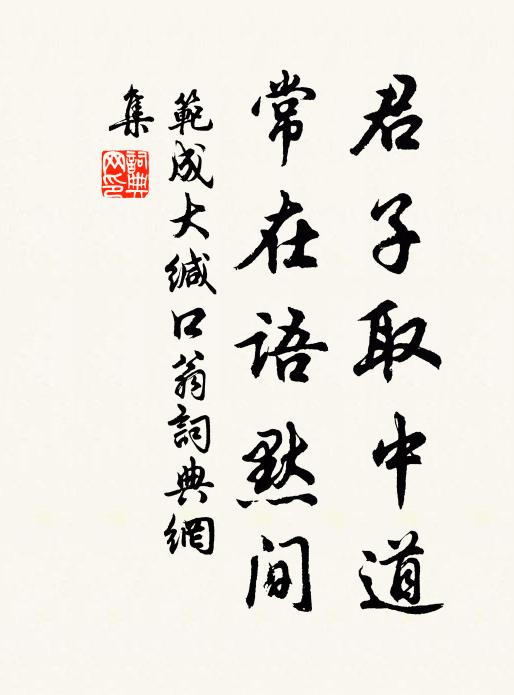 君子取中道
常在語默間
範成大緘口翁詞典網
集
詞典
网印